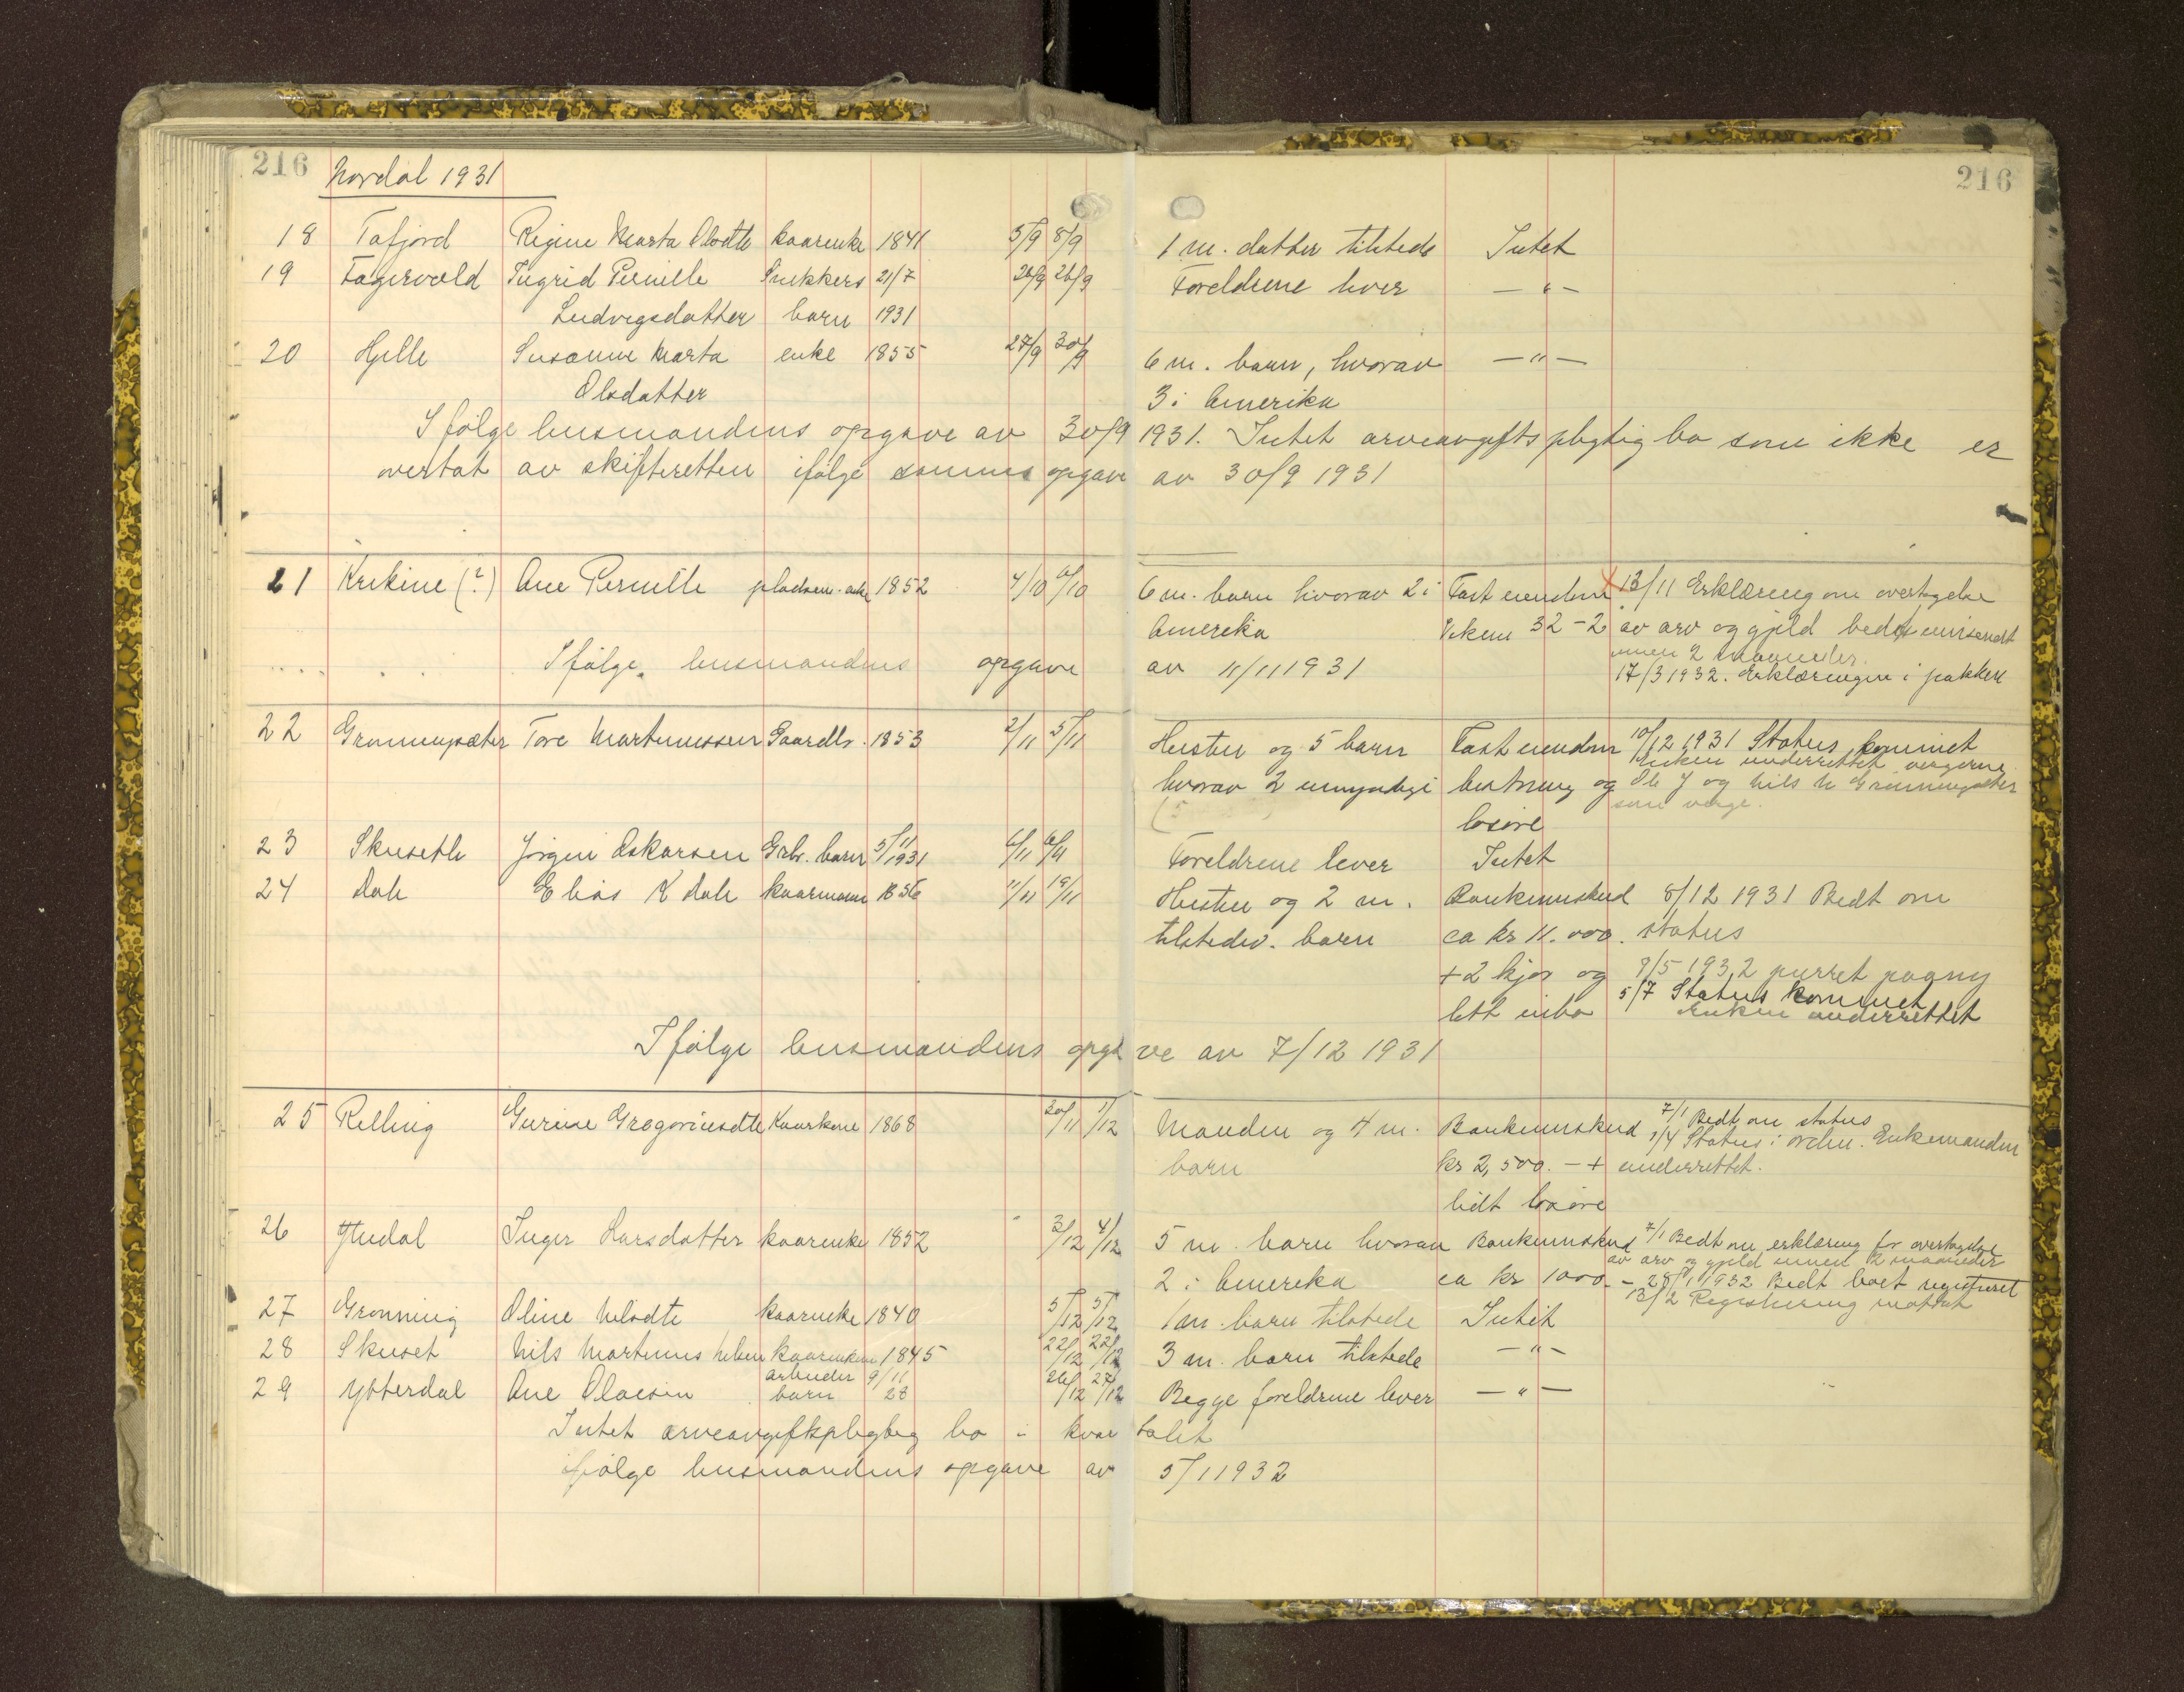 216 Nordal 1931 216
18 Tafjord Regine Marta Olsdtr kaarenke 1841 5/9 8/9 1 m. datter tilstede Intet
19 Fagervold Ingrid Pernille Snekkers 21/7 26/9 26/9 Foreldrene lever — " —
Ludvigsdatter barn 1931
20 Hjelle Susanne Marta enke 1855 27/9 30/9 6 m. barn, hvorav — " —
Olsdatter 3 i Amerika
I følge lensmandens opgave av 30/9 1931. Intet arveavgiftspligtig bo som ikke er
overtat av skifteretten ifølge sammes opgave av 30/9 1931
21 Krikine (?) Ane Pernille pladsen. enke 1852 4/10 6/10 6 m. barn hvorav 2 i Fast eiendom 13/11 Erklæring om overtagelse
Amerika 32-2 av arv og gjeld bedt
innen 2 maaneder.
I følge lensmandens opgave av 11/11 1931 17/3 1932. Erklæringen i pakken
22 Grønningsæter Tore Martinussen Gaardbr. 1853 2/11 5/11 Hustru og 5 barn Fast eiendom 10/12 1931 Status kommet
Enken underrettet vergerne
hvorav 2 umyndige besetning og Ole J og Nils N Grønningsæter
som verge.
løsøre
23 Skuseth Jørgen Oskarsen Grbr. barn 5/11 1931 6/11 6/11 Foreldrene lever Intet
24 Dale Elias K Dale kaarmann 1856 11/11 19/11 Hustru og 2 m. Bankinnskud 8/12 1931 Bedt om
tilstedev. barn ca kr 11.000. status
+ 2 kjør og 9/5 1932 purret paany
5/7 Status kommet
litt inbo Enken underrettet
I følge lensmandens opgave av 7/12 1931
25 Relling Gurine Gregoriusdtr Kaarkone 1868 20/11 1/12 Manden og 4 m. Bankinnskud 7/1 Bedt om status
1/4 Status i orden. Enkemanden
barn kr 2,500.- + underrettet.
lidt løsøre
26 Ytredal Inger Larsdatter kaarenke 1852 3/12 4/12 5 m. barn hvorav Bankinnskud 7/1 Bedt om erklæring for overtagelse
av arv og gjeld innen 2 maaneder
2 i Amerika ca kr 1000.- 28/1 1932 Bedt boet registreret
13/2 Registrering mottat
27 Grønning Oline Nilsdtr kaarenke 1840 5/12 5/12 1 m. barn tilstede Intet
28 Skuset Nils Martinus Nilsen kaarenkem 1845 22/12 22/12 3 m. barn tilstede — " —
29 Ytterdal Ane Olaesen arbeider barn 9/11 23 26/12 27/12 Begge foreldrene lever — " —
Intet arveavgiftspligtig bo i kvartalet
ifølge lensmandens opgave av 5/1 1932